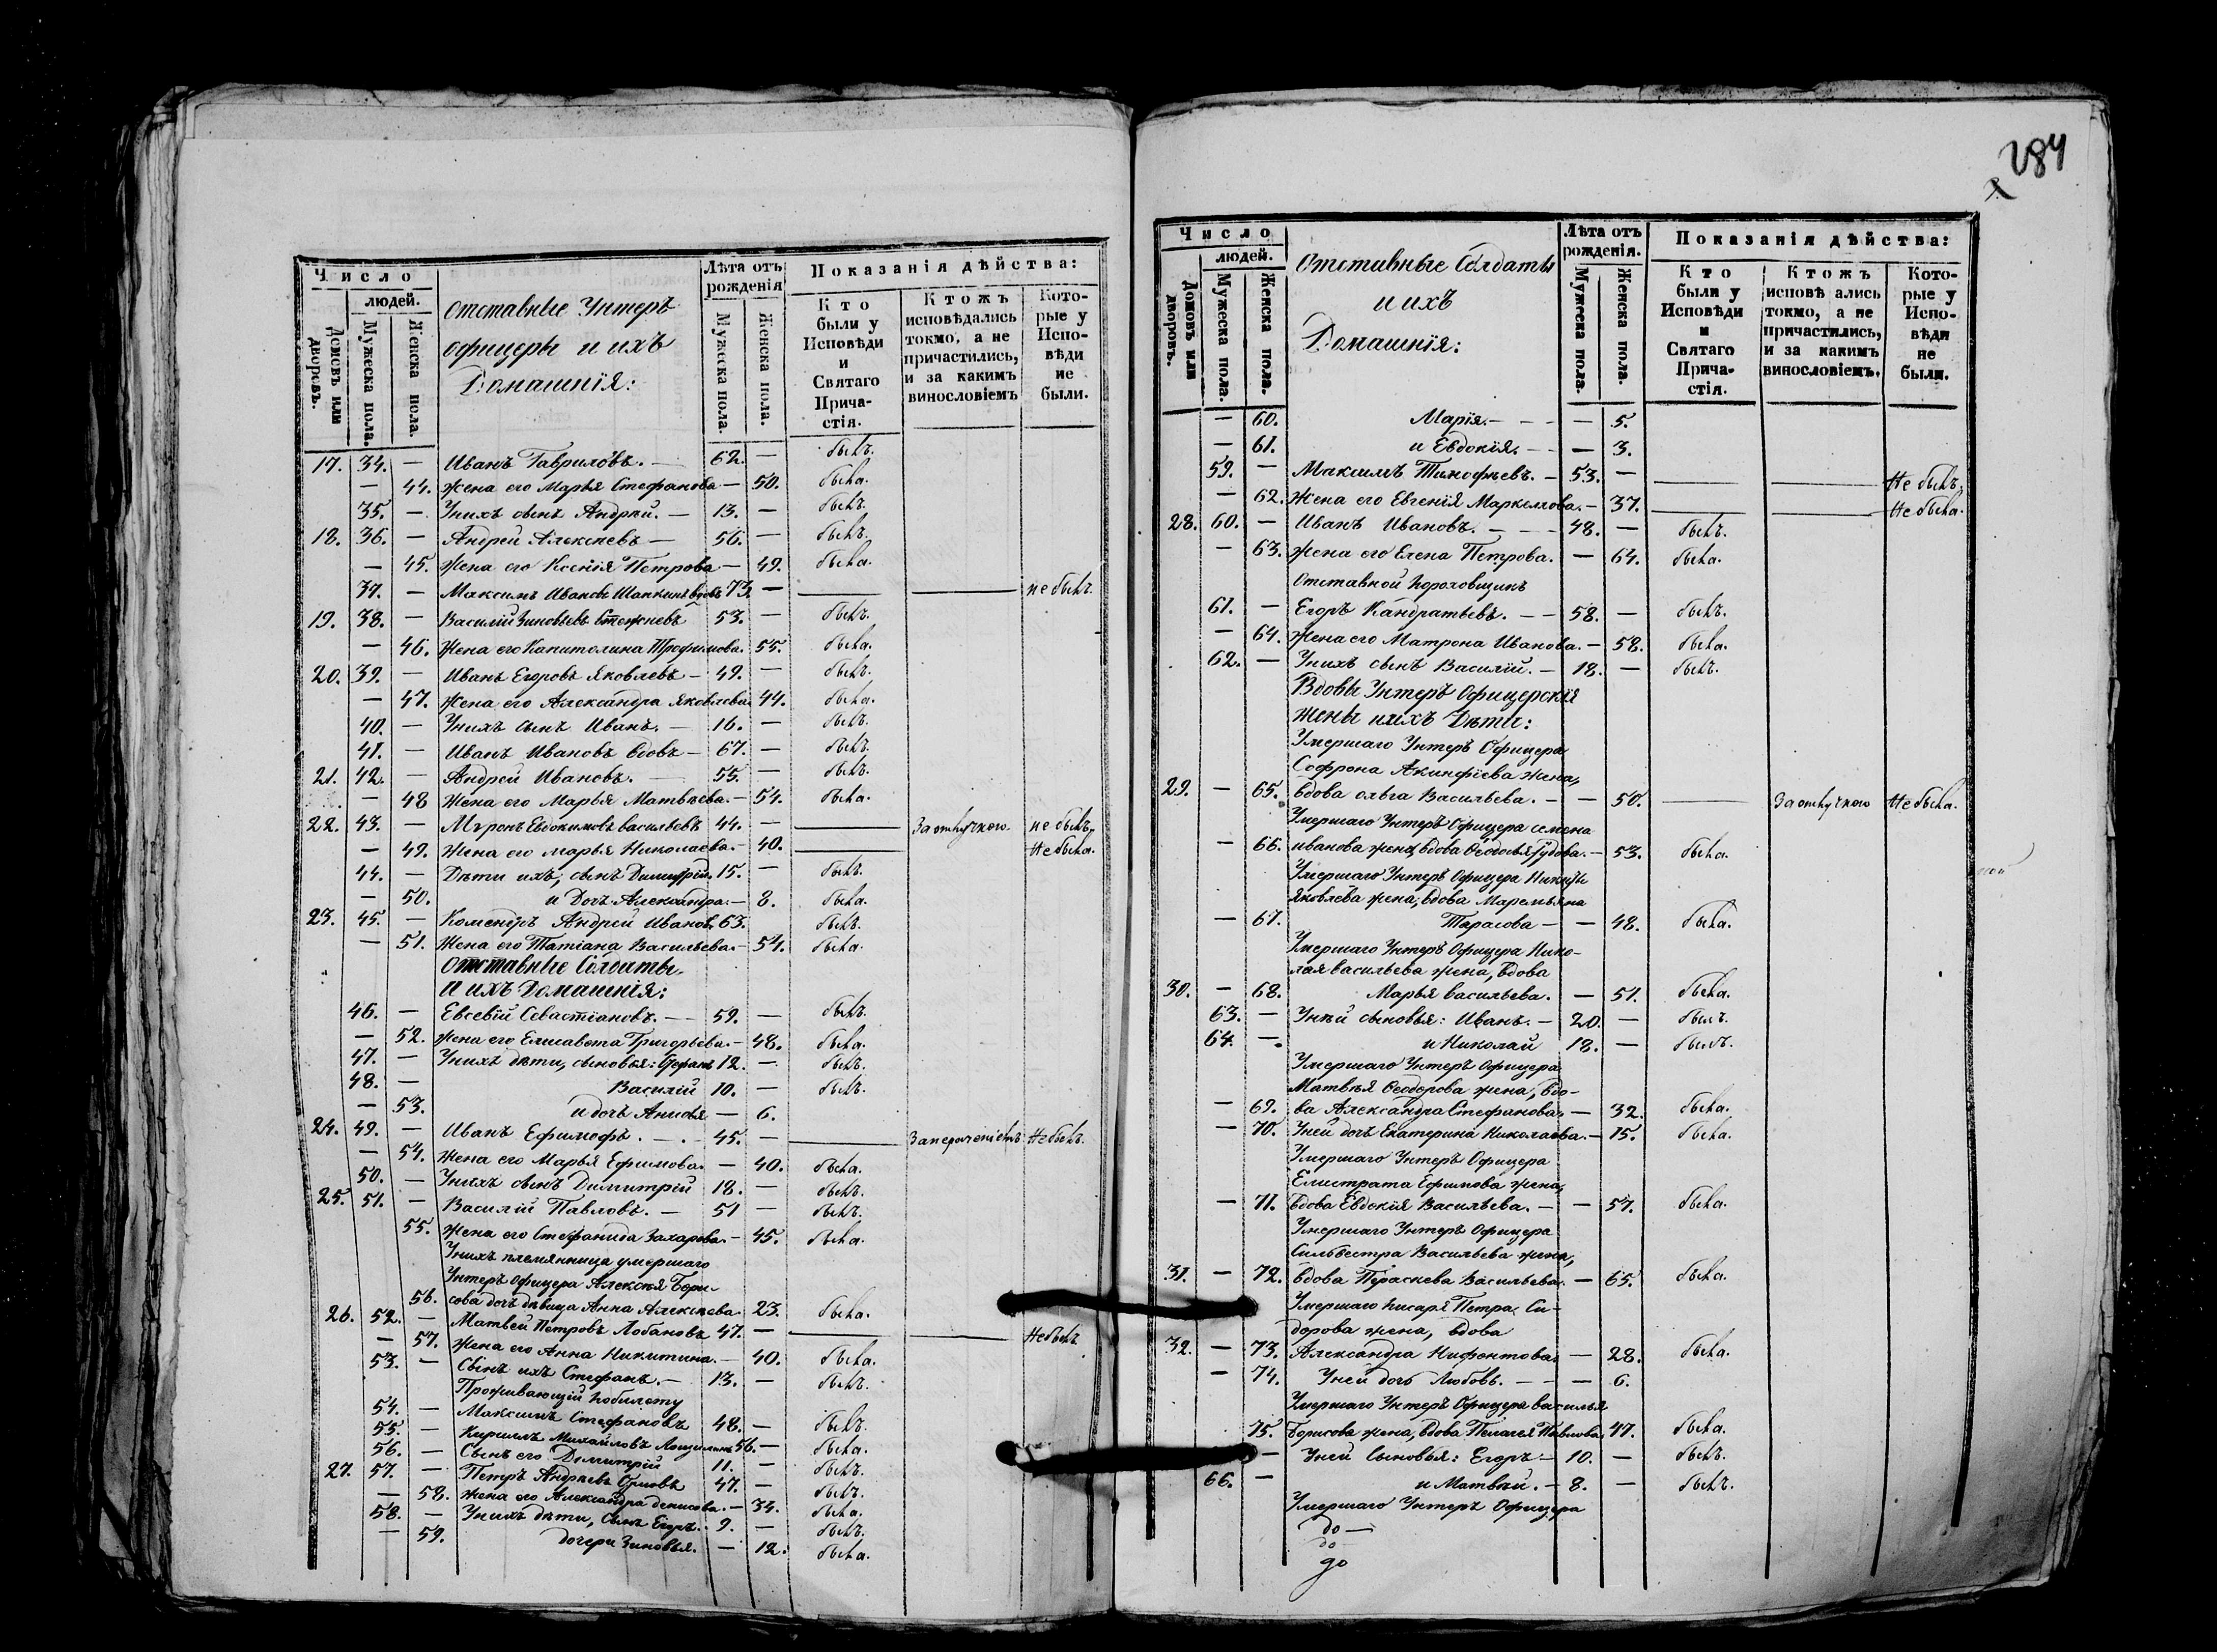 284
Число
людей.
Домовъ или дворовъ.
Мужеска пола.
Женска пола.
Отставные Унтеръ
офицеры и ихъ
Домашнія:
Лѣта отъ рожденія
Мужеска пола.
Женска пола.
Показанія дѣйства:
Кто были у Исповѣди и Святаго Причастія.
Ктожъ исповѣдались токмо, а не причастились, и за какимъ винословіемъ
Которые у Исповѣди не были.
17. 34. — Иванъ Гавриловъ. — 62. — былъ.
— 44. жена его Марья Стефанова — 50. была.
35. — Унихъ сынъ Андрей. — 13. — былъ.
18. 36. — Андрей Алексѣевъ — 56. — былъ.
— 45. Жена его Ксенія Петрова — 49. была.
37. — Максимъ Ивановъ Шапкинъ вдовъ 73. — не былъ.
19. 38. — Василій Зиновьевъ 53. — былъ.
— 46. Жена его Капитолина Трофимова. 55. была.
20. 39. — Иванъ Егоровъ Яковлевъ — 49. — былъ.
— 47. Жена его Александра Яковлева 44. была.
40. — Унихъ сынъ Иванъ. — 16. — былъ.
41. — Иванъ Ивановъ вдовъ — 67. — былъ.
21. 42. — Андрей Ивановъ. — 55. — былъ.
— 48 Жена его Марья Матвѣева. — 54. была.
22. 43. — Миронъ Евдокимовъ васильевъ 44. — За отлучкою не былъ.
— 49. Жена его Марья Николаева. — 40. Не была.
44. — Дѣти ихъ, сынъ Димитрій. 15. — былъ.
— 50. и Дочь Александра. — 8. была.
23. 45. — Андрей Ивановъ 63. былъ.
— 51. Жена его Татіана Васильева. — 54. была.
Отставные Солдаты
И ихъ Домашнія:
46. — Евсевій Севастіановъ. — 59. — былъ.
— 52. Жена его Елисавета Григорьева. — 48. была.
47. — Унихъ дѣти, сыновья: Стефанъ 12. — былъ.
48. — Василій 10. — былъ.
— 53. и дочь Анисья — 6.
24. 49. — Иванъ Ефимофъ. — 45. — Не былъ.
— 54. Жена его Марья Ефимова. — 40. была.
50. — Унихъ сынъ Димитрій 18. — былъ.
25. 51. — Василій Павловъ. — 51 — былъ.
55. Жена его Стефанида Захарова. — 45. была.
Унихъ племянница умершаго
Унтеръ Офицера Алексѣя Бори-
56. сова дочь дѣвица Анна Алексѣева. 23. была.
26. 52. — Матвей Петровъ Лобановъ 47. — Не былъ
— 57. Жена его Анна Никитина. — 40. была.
53. — Сынъ ихъ Стефанъ. — 13. — былъ.
Проживающій по билету
54. — Максимъ Стефановъ 48. — былъ.
55. — Кириллъ Михайловъ 56. — была.
56. — Сынъ его Димитрій 11. — былъ.
27. 57. — Петръ Андреевъ Орловъ 47. — былъ.
— 58. Жена его Александра Денисова. — 34. была.
58. — Унихъ дѣти, сынъ Егоръ. 9. — былъ.
— 59. дочери Зиновья. — 12. была.
Число
людей.
Домовъ или дворовъ.
Мужеска пола.
Женска пола.
Отставные Солдаты
и ихъ
Домашнія:
Лѣта отъ рожденія.
Мужеска пола.
Женска пола.
Показанія дѣйства:
Кто были у Исповѣди и Святаго Причастія.
Ктожъ исповѣ ались токмо, а не причастились, и за какимъ винословіемъ.
Которые у Исповѣди не были.
— 60. Марія. — — 5.
— 61. и Евдокія. — — 3.
59. — Максимъ Тимофѣевъ. — 53. — Не былъ.
— 62. Жена его Евгенія Маркеллова. — 37. Не была.
28. 60. — Иванъ Ивановъ. — 48. — былъ.
— 63. Жена его Елена Петрова. — 64. была.
Отставной пороховщикъ
61. — Егоръ Кандратьевъ. — 58. — былъ.
— 64. Жена его Матрона Иванова. — 58. была.
62. — Унихъ сынъ Василій. — 18. — былъ.
Вдовы Унтеръ Офицерскія
жены и ихъ Дѣти:
Умершаго Унтеръ Офицера
Софрона Акинфіева жена,
29. — 65. вдова Ольга Васильева. — — 50. За отлучкою Не была.
Умершаго Унтеръ Офицера семена
— 66. иванова жена, вдова Ѳеодосья — 53. была.
Умершаго Унтеръ Офицера Никиты
Яковлева жена, вдова Маремьяна
— 67. Тарасова — — 48. была.
Умершаго Унтеръ Офицера Нико-
лая васильева жена, вдова
30. — 68. Марья васильева. — 51. была.
63. — Унѣй сыновья: Иванъ. — 20. — былъ.
64. — и Николай 18. — былъ.
Умершаго Унтеръ Офицера
Матвѣя Ѳеодорова жена, вдо-
— 69. ва Александра Стефанова. — 32. была.
— 70. Уней дочь Екатерина Николаева. — 15. была.
Умершаго Унтеръ Офицера
Елистрата Ефимова жена,
— 71. вдова Евдокія Васильева. — — 57. была.
Умершаго Унтеръ Офицера
Сильвестра Васильева жена,
31. — 72. вдова Параскева Васильева. — 65. была.
Умершаго писаря Петра Си-
дорова жена, вдова
32. — 73. Александра Нифонтова. — 28. была.
— 74. Уней дочь Любовь. — — 6.
Умершаго Унтеръ Офицера василья
75. Борисова жена, вдова Пелагея Павлова. 47. была.
— Уней Сыновья: Егоръ — 10. — былъ.
66. — и Матвѣй. — 8. — былъ.
Умершаго Унтеръ Офицера
до —
до
до